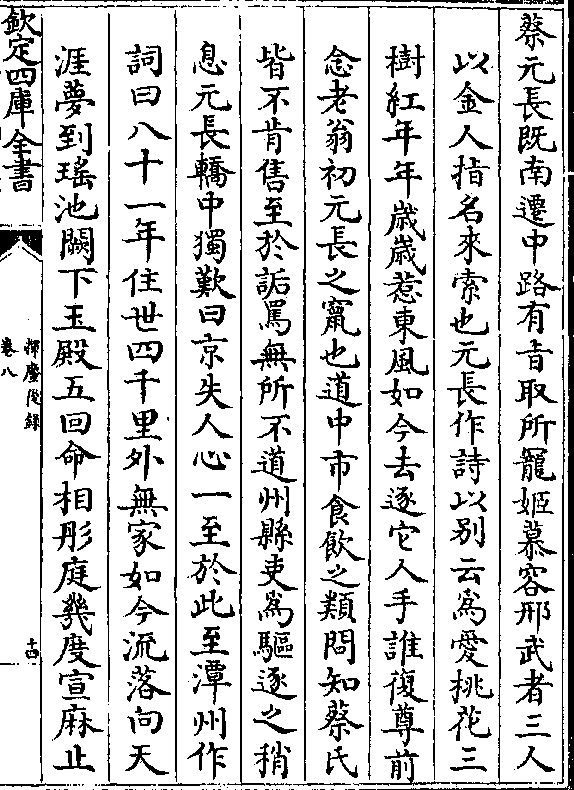 蔡元長既南遷中路有㫖取所寵姬慕容邢武者三人
以金人指名來索也元長作詩以别云為愛桃花三
樹紅年年歲歲惹東風如今去逐它人手誰復尊前
念老翁初元長之竄也道中市食飲之類問知蔡氏
皆不肯售至於詬罵無所不道州縣吏為驅逐之稍
息元長轎中獨歎曰京失人心一至於此至潭州作
詞曰八十一年住世四千里外無家如今流落向天
涯夢到瑤池闕下玉殿五回命相彤庭幾度宣麻止
欽定四庫全書
揮麈後録
卷八
十四